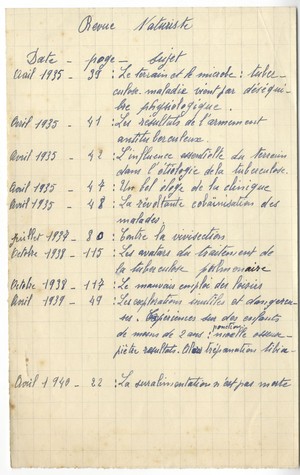 Revue Naturiste
Date - page - sujet
Avril 1935 - 39 : Le terrain et le microbe : tuber-
culose maladie vient par déséqui-
libre physiologique.
Avril 1935 - 41 : Les résultats de l'armement
antituberculeux.
Avril 1935 - 42 : L'influence essentielle du terrain
dans l'étiologie de la tuberculose.
Avril 1935 - 47 : Un bel éloge de la clinique
Avril 1935 - 48 : La révoltante cobaïnisation des
malades.
Juillet 1937 - 80 : Contre la vivisection
Octobre 1938 - 115 : Les avatars du traitement de
la tuberculose pulmonaire
Octobre 1938 - 117 : Le mauvais emploi des loisirs
Avril 1939 - 49 : Les explorations inutiles et dangereu-
ses : Expériences sur des enfants
ponction
de moins de 2 ans : moelle osseuse
piètre resultats. trépanation tibia
Avril 1940 - 22 : La suralimentation n'est pas morte